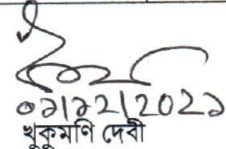 ০১/১২/২০২১
খুকুমণি দেবী